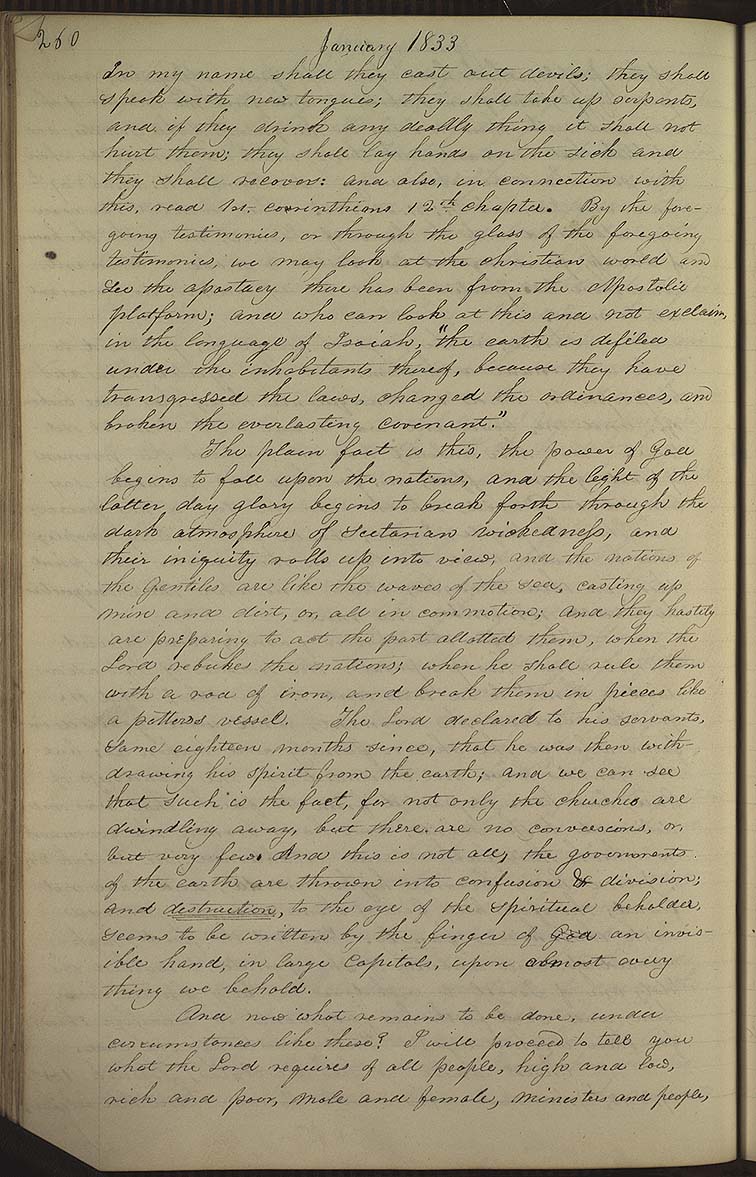 260
January 1833
In my name shall they cast out devils; they shall
speak with new tongues; they shall take up serpents,
and if they drink any deadly thing it shall not
hurt them; they shall lay hands on the sick and
they shall recover: and also, in connection with
this, read 1st. corrinthians 12th chapter. By the fore-
going testimonies, or through the glass of the foregoing
testimonies, we may look at the christian world and
see the apostacy there has been from the Apostolic
platform; and who can look at this and not exclaim,
in the language of Isaiah, "the earth is defiled
under the inhabitants thereof, because they have
transgressed the laws, changed the ordinances, and
broken the everlasting covenant."
The plain fact is this, the power of God
begins to fall upon the nations, and the light of the
latter day glory begins to break forth through the
dark atmosphere of sectarian wickedness, and
their iniquity rolls up into view, and the nations of
the Gentiles are like the waves of the sea, casting up
mire and dirt, or, all in commotion; and they hastily
are preparing to act the part allotted them, when the
Lord rebukes the nations; when he shall rule them
with a rod of iron, and break them in pieces like
a potters vessel. The Lord declared to his servants,
some eighteen months since, that he was then with-
drawing his spirit from the earth; and we can see
that such is the fact, for not only the churches are
dwindling away, but there are no conversions, or,
but very few. And this is not all, the governments
of the earth are thrown into confusion & division;
and destruction, to the eye of the spiritual beholder,
seems to be written by the finger of God an invis-
ible hand, in large Capitals, upon almost every
thing we behold.
And now what remains to be done, under
circumstances like these? I will proceed to tell you
what the Lord requires of all people, high and low,
rich and poor, male and female, ministers and people,